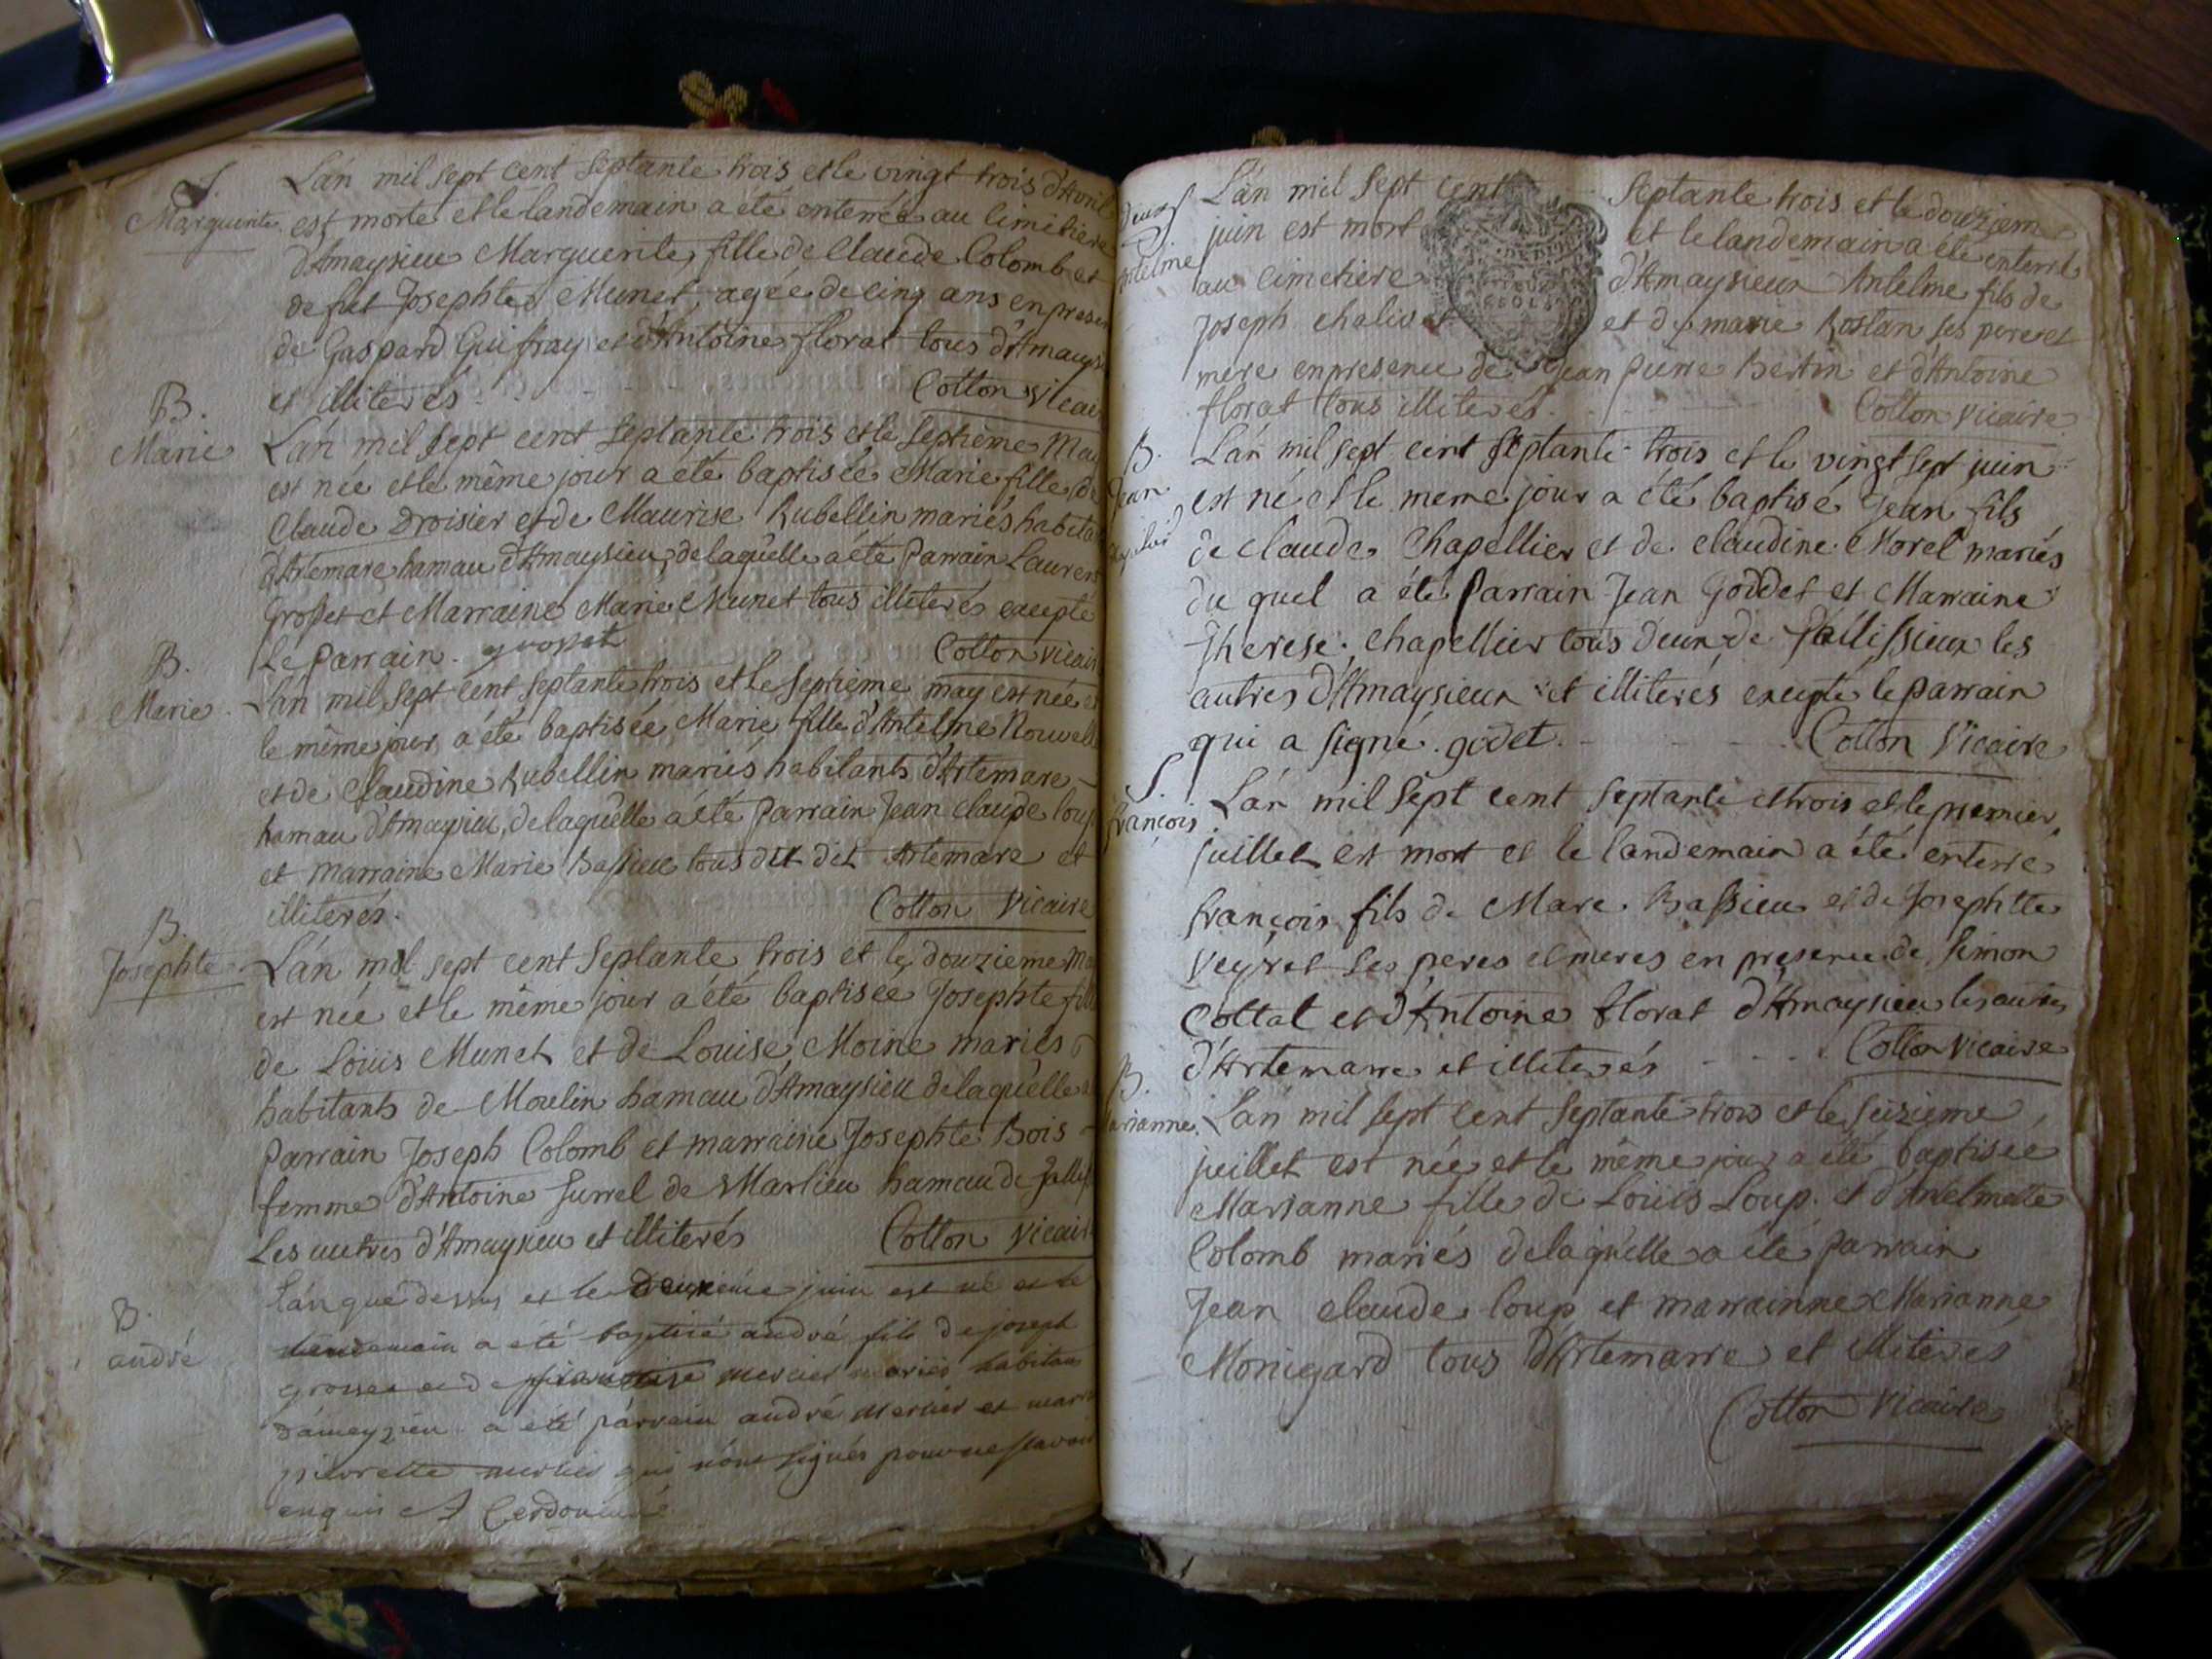 S.
Marguerite
Lán mil sept cent septante trois et le vingt trois d'Avril
est morte et le landemain a été enterrée au cimitiere
d'Amaysieu Marguerite fille de Claude Colomb et
de fut Josephte Munet, agée de cinq ans en presen
de Gaspard Guifray et d'Antoine florat tous d'Amaysi
et illiterés. Cotton Vicai
B.
Marie
Lán mil sept cent septante trois et le septième May
est née et le même jour a été baptisée Marie fille de
Claude Droisier et de Maurise Rubellin mariés habita
d'Artemare hamau d'Amaysieu, de laquelle a été Parrain Laurens
Grosset et Marraine Marie Munet tous illiterés excepté
le Parrain. grosset Cotton vicair
B.
Marie
Lán mil sept cent septante trois et le septième may est née et
le même jour a été baptisée Marie fille d'Antelme Nouvelle
et de Claudine Rubellin mariés habitants d'Artemare
hamau d'Amaysieu, de laquelle a été Parrain Jean claude loup
et marraine Marie Bassieu tous dut dit Artemare et
illiterés. Cotton Vicaire
B.
Josephte
Lán mil sept cent septante trois et le douzieme ma
est née et le même jour a été baptisée Josephte fill
de Loüis Munet et de Louise Moine mariés
habitants de Moulin hamau d'Amaysieu de laquelle a
Parrain Joseph Colomb et marraine Josephte Bois
femme d'Antoine Surrel de Marlieu hamau de
Les autres d'Amaysieu et illiterés Cotton Vicair
B.
andré
lán que dessus et le deuxième juin est né et le
lendemain a été baptisé andré fils de joseph
grosset et de mercier mariés habitans
d'ameyzieu a été parrain andré mercier et marr
pierrette mercier qui n'ont signés pour ne scavoir
enquis
S.
Antelme
Lán mil sept cent septante trois et le douzieme
juin est mort et le landemain a été enterré
au cimetiere d'Amaysieux Antelme fils de
Joseph chalivet et de marie Roslan ses pere et
mere en presence de Jean Pierre Bertin et d'Antoine
florat tous illiterés. Cotton vicaire
B.
Jean
Lán mil sept cent septante trois et le vingt sept juin
est né et le meme jour a été baptisé Jean fils
de claude Chapellier et de claudine Morel mariés
du quel a été Parrain Jean Goddet et Marraine
Therese Chapellier tous deux de Tallissieux les
autres d'Amaysieux et illiterés excepté le parrain
qui a signé. godet. Cotton Vicaire
S.
françois
Lán mil sept cent septante et trois et le premier
juillet est mort et le landemain a été enterré
françois fils de Marc Bassieu et de Josephtte
Veyret ses peres et meres en presence de Simon
Cottat et d'Antoine florat d'Amaysieu les autres
d'Artemarre et illiterés Cotton Vicaire
B.
Marianne.
Lán mil sept cent septante trois et le seizieme
juillet est née et le même jour a été baptisée
Marianne fille de Loüis Loup et d'Antelmete
Colomb mariés de laquelle a été parrain
Jean claude loup et marrainne Marianne
Monigard tous d'Artemarre et illiterés
Cotton Vicaire